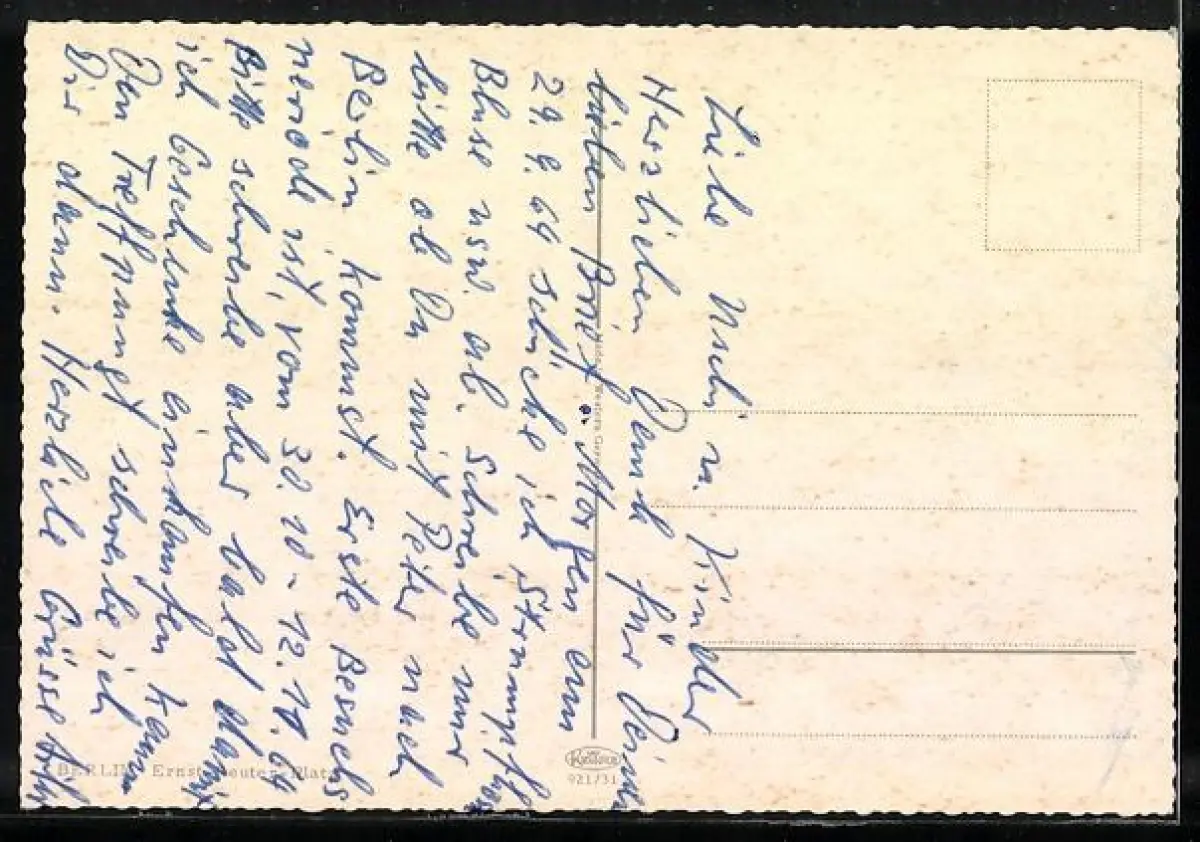 Liebe Uschi u. Kinder
Herzlichen Dank für Deinen
lieben Brief. Morgen am
29. 9. 64 schicke ich Strumpfhose
Bluse usw. ab. Schreibe mir
bitte ob Du mit Peter nach
Berlin kommst. Erste Besuchs
periode ist, vom 30. 10 - 12. 11. 64
Bitte schreibe aber bald damit
ich Geschenke einkaufen kann
Den Treffpunkt schreibe ich
Dir dann. Herzliche Grüsse
BERLIN Ernst-Reuter-Platz
921/31